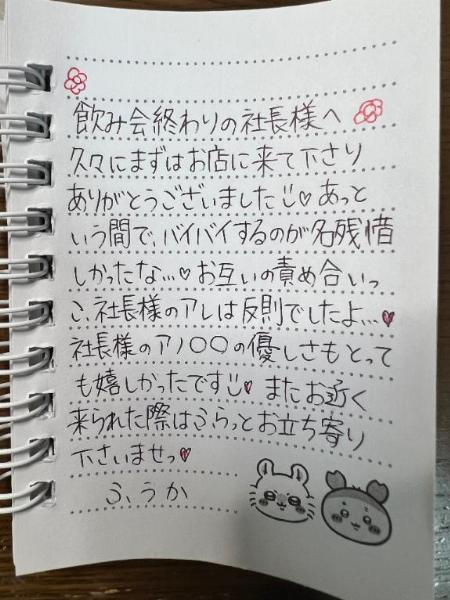 飲み会終わりの社長様へ
久々にまずはお店に来て下さり
ありがとうございました♡あっと
いう間で、バイバイするのが名残惜
しかったな…♡お互いの責め合いっ
こ、社長様のアレは反則でしたよ…♥
社長様のアノ〇〇の優しさもとって
も嬉しかったです♥またお近く
来られた際はふらっとお立ち寄り
下さいませっ♥
ふうか